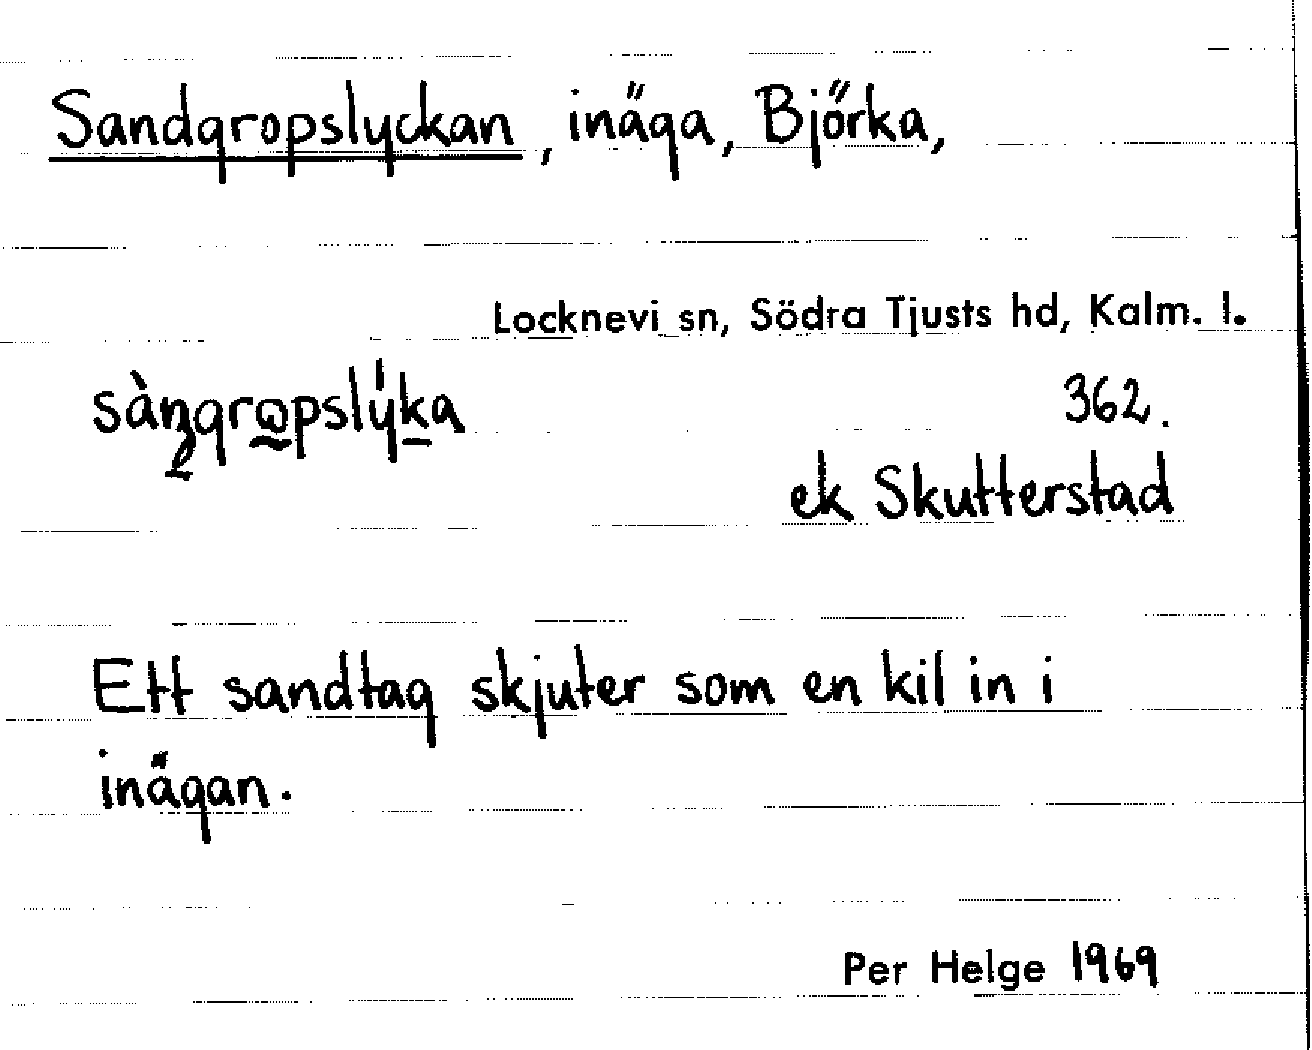 Sandgropslyckan, inäga, Björka,
Locknevi sn, Södra Tjusts hd, Kalm. l.
362.
ek Skutterstad
Ett sandtag skjuter som en kil in i
inägan.
Per Helge 1969